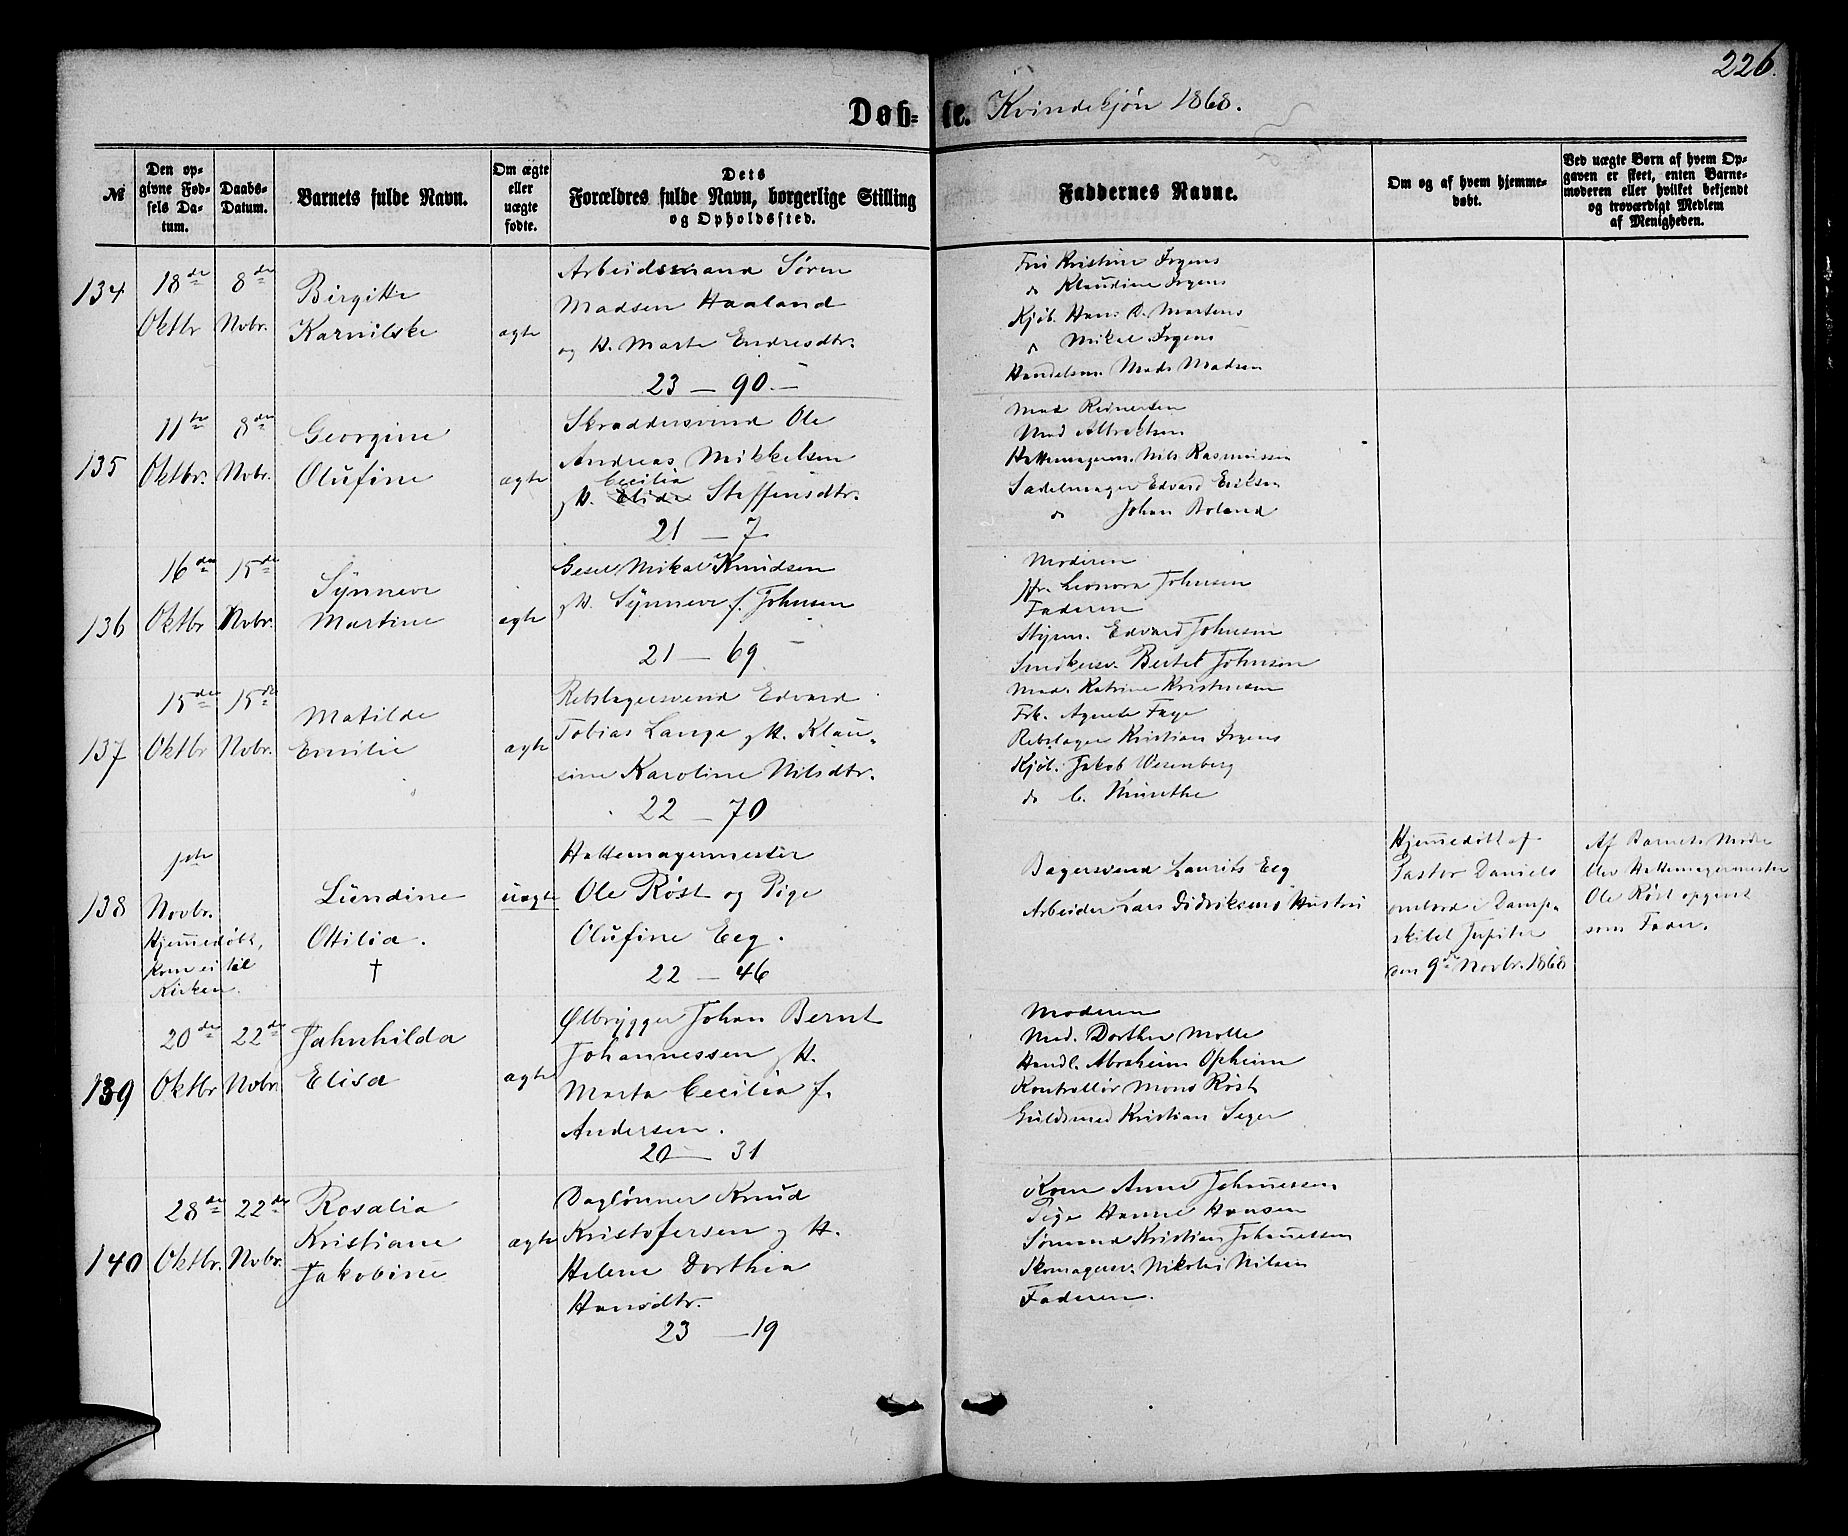 226.
Døb=te. Kvindekjøn 1868.
№
Den op-
givne Fød-
sels Da-
tum.
Daabs-
Datum.
Barnets fulde Navn.
Om ægte
eller
uægte
fødte.
Dets
Forældres fulde Navn, borgerlige Stilling
og Opholdssted.
Faddernes Navne.
Om og af hvem hjemme-
døbt.
Ved uægte Børn af hvem Op-
gaven er skeet, enten Barne-
moderen eller hvilket bekjendt
og troværdigt Medlem
af Menigheden.
134
18de
Oktbr
8de
Nvbr.
Birgitte
Karnilske
ægte
Arbeidsmand Søren
Madsen Haaland
og H. Marte Endresdtr.
23 — 90.
Kristine Irgens
do Klaudine Irgens
Kjøb. Hans R. Martens
do Mikal Irgens
Handelsm. Mads Madsen
135
11te
Oktbr.
8de
Nvbr.
Georgine
Olufine
ægte
Skraddersvend Ole
Andreas Mikkelsen
Cecilia
og H. Elide Steffensdtr.
21 — 7
Mad Reinertsen
Mad
Hattemagerm. Nils Rasmussen
Sadelmager Edvard Eriksen
do Johan Boland
136
16de
Oktbr
15de
Nvbr.
Synneve
Martine
ægte
Gesel Mikal Knudsen
og H. Synneve f. Johnsen
21 — 69
Moderen
Leonora Johnsen
Faderen
Styrm. Edvard Johnsen
Snedkersv. Bertel Johnsen
137
15de
Oktbr
15de
Nvbr.
Matilde
Emilie
ægte
Rebslagersvend Edvard
Tobias Lange og H. Klau-
sine Karoline Nilsdtr.
22 — 70
Mad. Katrine Kristensen
Frk. Agnete Faye
Rebslager Kristian Irgens
Kjøb. Jakob Wesenberg
do C. Münthe
138
Novbr.
Hjemmedøbt,
kom ei til
Kirken.
Lundine
Ottilia.
†
uægte
Hattemagermester
Ole Røst og Pige
Olufine Eeg.
22 — 46
Bagersvend Laurits Eeg
Arbeider Lars Didriksens Hustru
Hjemmedøbt af
Pastor Daniels
ombord i Damp-
skibet Jupiter
den 9de Novbr. 1868
Af Barnets Moder
blev Hattemagermester
Ole Røst opgivet
som Fader.
139
20de
Oktbr
22de
Nvbr.
Jahnhilda
Elisa
ægte
Ølbrygger Johan Bernt
Johannessen og H.
Marta Cecilia f.
Andersen.
20 — 31
Moderen
Mad. Dorthea Molle
Handl. Abraham Opheim
Kontrollør Mons Røst
Guldsmed Kristian Seger
140
28de
Oktbr.
22de
Nvbr.
Rosalia
Kristiane
Jakobine
ægte
Daglønner Knud
Kristofersen og H.
Helene Dorthea
Hansdtr.
23 — 19
Kone Anne Johannessen
Pige Hanne Hansen
Sømand Kristian Johannessen
Skomagersv. Nikolai Nilsen
Faderen.